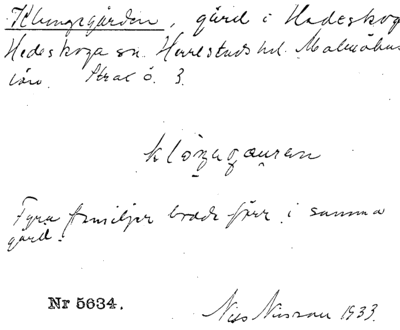 Klungsgården, gård i Hedeskoga
Hedeskoga sn. Herrestads hd. Malmöhus
län. Strax ö. 3.
Fyra familjer bodde förr i samma
gård.
Nr 5634.
Nils Nilsson 1933.